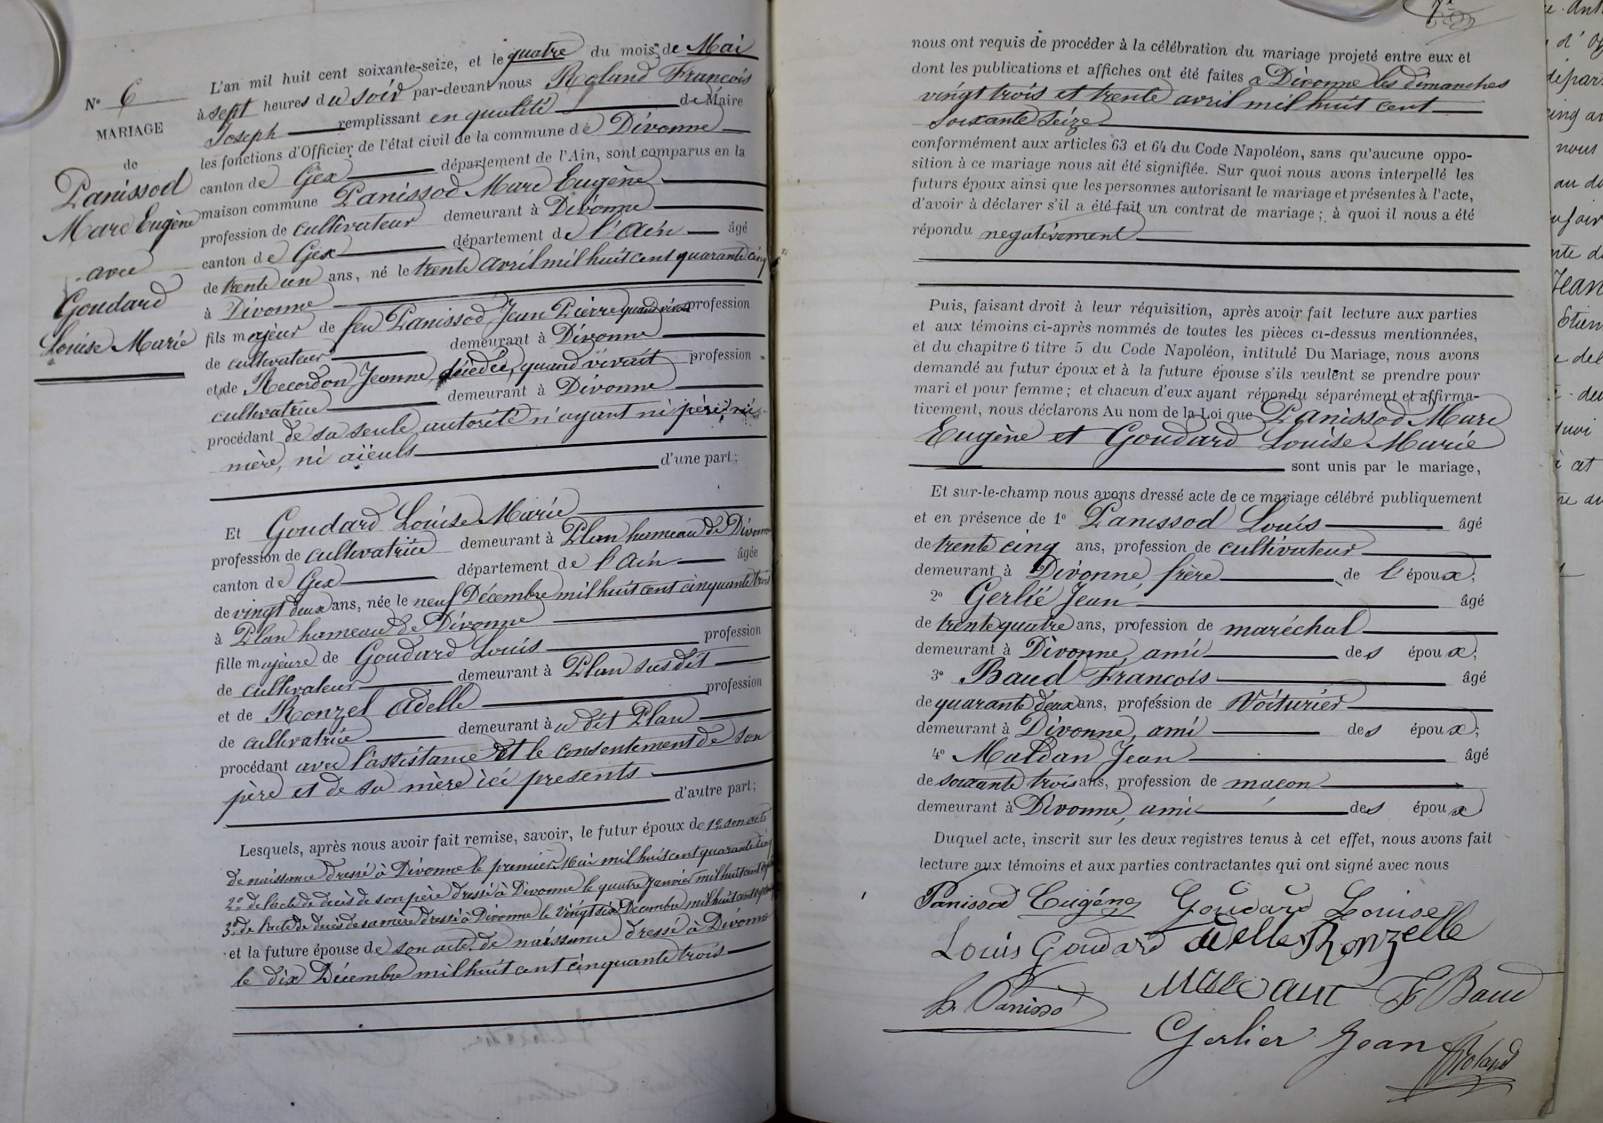 N° 6
MARIAGE
de
Panissod
Marc Eugène
avec
Goudard
Louise Marie
L'an mil huit cent soixante-seize, et le quatre du mois de Mai
à sept heures du soir par-devant nous Roland François
Joseph remplissant en qualité de Maire
les fonctions d'Officier de l'état civil de la commune de Divonne
canton de Gex département de l'Ain, sont comparus en la
maison commune Panissod Marc Eugène
profession de cultivateur demeurant à Divonne
canton de Gex département de l'Ain âgé
de trente un ans, né le trente avril mil huit cent quarante cinq
à Divonne
fils majeur de feu Panissod Jean Pierre quand vivait profession
de cultivateur demeurant à Divonne
et de Recordon Jeanne, décédée, quand vivait profession
cultivatrice demeurant à Divonne
procédant de sa seule autorité n'ayant ni père, ni
mère, ni aïeuls
d'une part;
Et Goudard Louise Marie
profession de cultivatrice demeurant à Plan hameau de Divonne
canton de Gex département de l'Ain âgée
de vingt deux ans, née le neuf Décembre mil huit cent cinquante trois
à Plan hameau de Divonne
fille majeure de Goudard Louis profession
de cultivateur demeurant à Plan susdit
et de Ronzel Adelle profession
de cultivatrice demeurant à u dit Plan
procédant avec l'assistance et le consentement de son
père et de sa mère ici presents
d'autre part;
Lesquels, après nous avoir fait remise, savoir, le futur époux de 1° son acte
de naissance dressé à Divonne le premier Mai mil huit cent quarante cinq
2° de l'acte de décès de son père dressé à Divonne le quatre Janvier mil huit cent
3° de l'acte de décès de sa mère dressé à Divonne le vingt six Décembre mil huit cent
et la future épouse de son acte de naissance dressé à Divonne
le dix Décembre mil huit cent cinquante trois
nous ont requis de procéder à la célébration du mariage projeté entre eux et
dont les publications et affiches ont été faites à Divonne les dimanches
vingt trois et trente avril mil huit cent
soixante seize
conformément aux articles 63 et 64 du Code Napoléon, sans qu'aucune oppo-
sition à ce mariage nous ait été signifiée. Sur quoi nous avons interpellé les
futurs époux ainsi que les personnes autorisant le mariage et présentes à l'acte,
d'avoir à déclarer s'il a été fait un contrat de mariage; à quoi il nous a été
répondu negativement
Puis, faisant droit à leur réquisition, après avoir fait lecture aux parties
et aux témoins ci-après nommés de toutes les pièces ci-dessus mentionnées,
et du chapitre 6 titre 5 du Code Napoléon, intitulé Du Mariage, nous avons
demandé au futur époux et à la future épouse s'ils veulent se prendre pour
mari et pour femme; et chacun d'eux ayant répondu séparément et affirma-
tivement, nous déclarons Au nom de la Loi que Panissod Marc
Eugène et Goudard Louise Marie
sont unis par le mariage,
Et sur-le-champ nous avons dressé acte de ce mariage célébré publiquement
et en présence de 1° Panissod Louis âgé
de trente cinq ans, profession de cultivateur
demeurant à Divonne, frère de l'époux;
2° Gerlié Jean âgé
de trente quatre ans, profession de maréchal
demeurant à Divonne, ami des époux;
3° Baud François âgé
de quarante deux ans, profession de Voiturier
demeurant à Divonne, ami des époux;
4° Maldan Jean âgé
de soixante trois ans, profession de maçon
demeurant à Divonne, ami des époux
Duquel acte, inscrit sur les deux registres tenus à cet effet, nous avons fait
lecture aux témoins et aux parties contractantes qui ont signé avec nous
Panissod Eugène Goudard Louise
Louis Goudard adelle Ronzelle
Ls Panisso F Baud
Gerlier Jean Roland